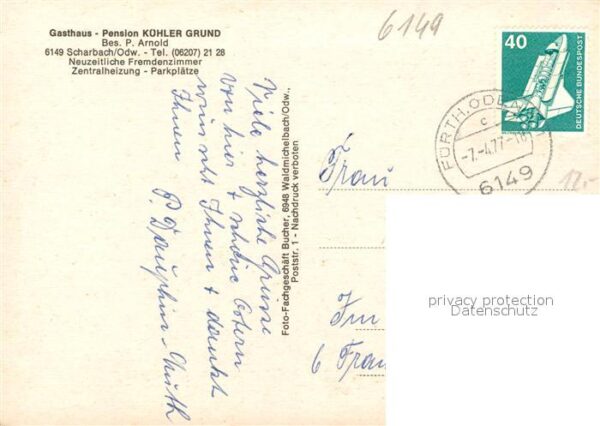 Gasthaus - Pension KÜHLER GRUND
Bes. P. Arnold
6149 Scharbach/Odw. - Tel. (06207) 21 28
Neuzeitliche Fremdenzimmer
Zentralheizung - Parkplätze
6149
40
DEUTSCHE BUNDESPOST
FÜRTH, ODENW
c
-7.-4.77-10
6149
12,-
Viele herzliche Grüsse
von hier + schöne Ostern
wünscht Ihnen + dankt
Ihnen P.
Foto-Fachgeschäft Bucher, 6948 Waldmichelbach/Odw.,
Poststr. 1 - Nachdruck verboten
Frau
Im
6 Fran
privacy protection
Datenschutz